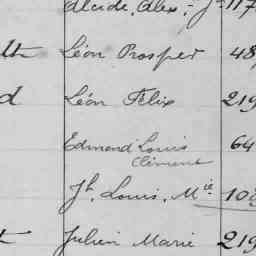 Alcide, Alex, - J 117
Léon Prosper 48
d Léon Félix 219
Edmond Louis 64
Clément
Jh. Louis, Mie 108
Julien Marie 219